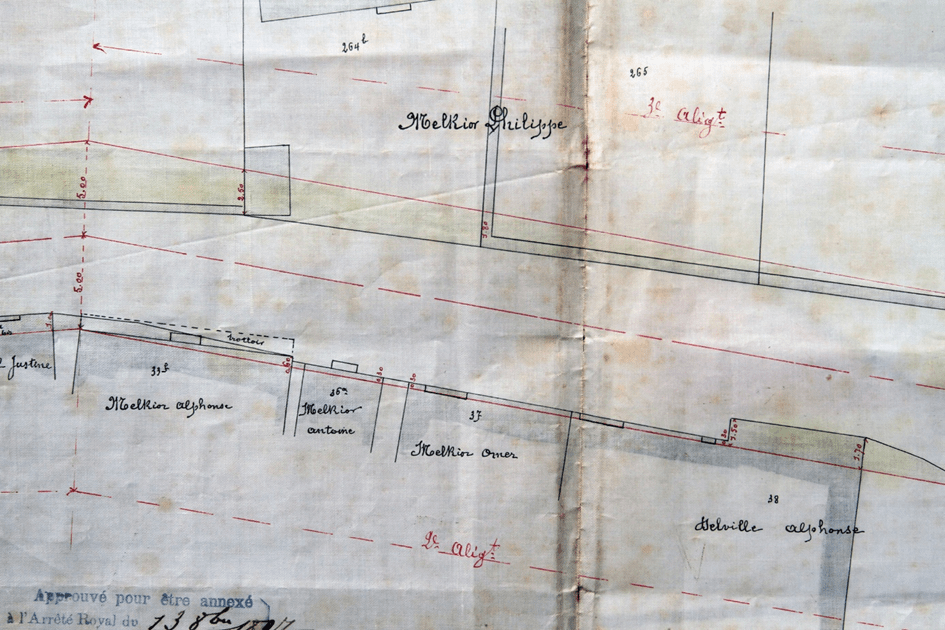 264
265
Melkior Philippe
3e Aligt
5.00
2.50
5.00
trottoir
Justine
Melkior alphonse
36a
Melkior
antoine
37
Melkior omer
38
Delville alphonse
1.70
2e Aligt
Approuvé pour être annexé
à l'Arrêté Royal du 13 8bre